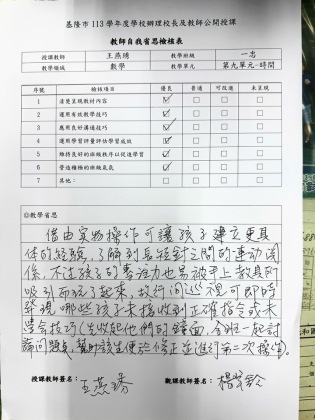 基隆市113學年度學校辦理校長及教師公開授課
教師自我省思檢核表
授課教師 王燕琇 教學班級 一忠
教學領域 數學 教學單元 第九單元-時間
序號 檢核項目 優良 普通 可改進 未呈現
1 清楚呈現教材內容 ☑ □ □ □
2 運用有效教學技巧 ☑ □ □ □
3 應用良好溝通技巧 ☑ □ □ □
4 運用學習評量評估學習成效 ☑ □ □ □
5 維持良好的班級秩序以促進學習 ☑ □ □ □
6 營造積極的班級氣氛 ☑ □ □ □
7 其他： □ □ □ □
◎教學省思
借由實物操作可讓孩子建立更具
體的經驗，了解到長短針之間的連動關
係，不過孩子的專注力也易被手上教具所
吸引而玩了起來，故行間巡視可即時
發現哪些孩子未接收到正確指令或未
學會技巧
論問題點，幫助該生便於修正並進行第二次操作。
授課教師簽名： 王燕琇 觀課教師簽名：